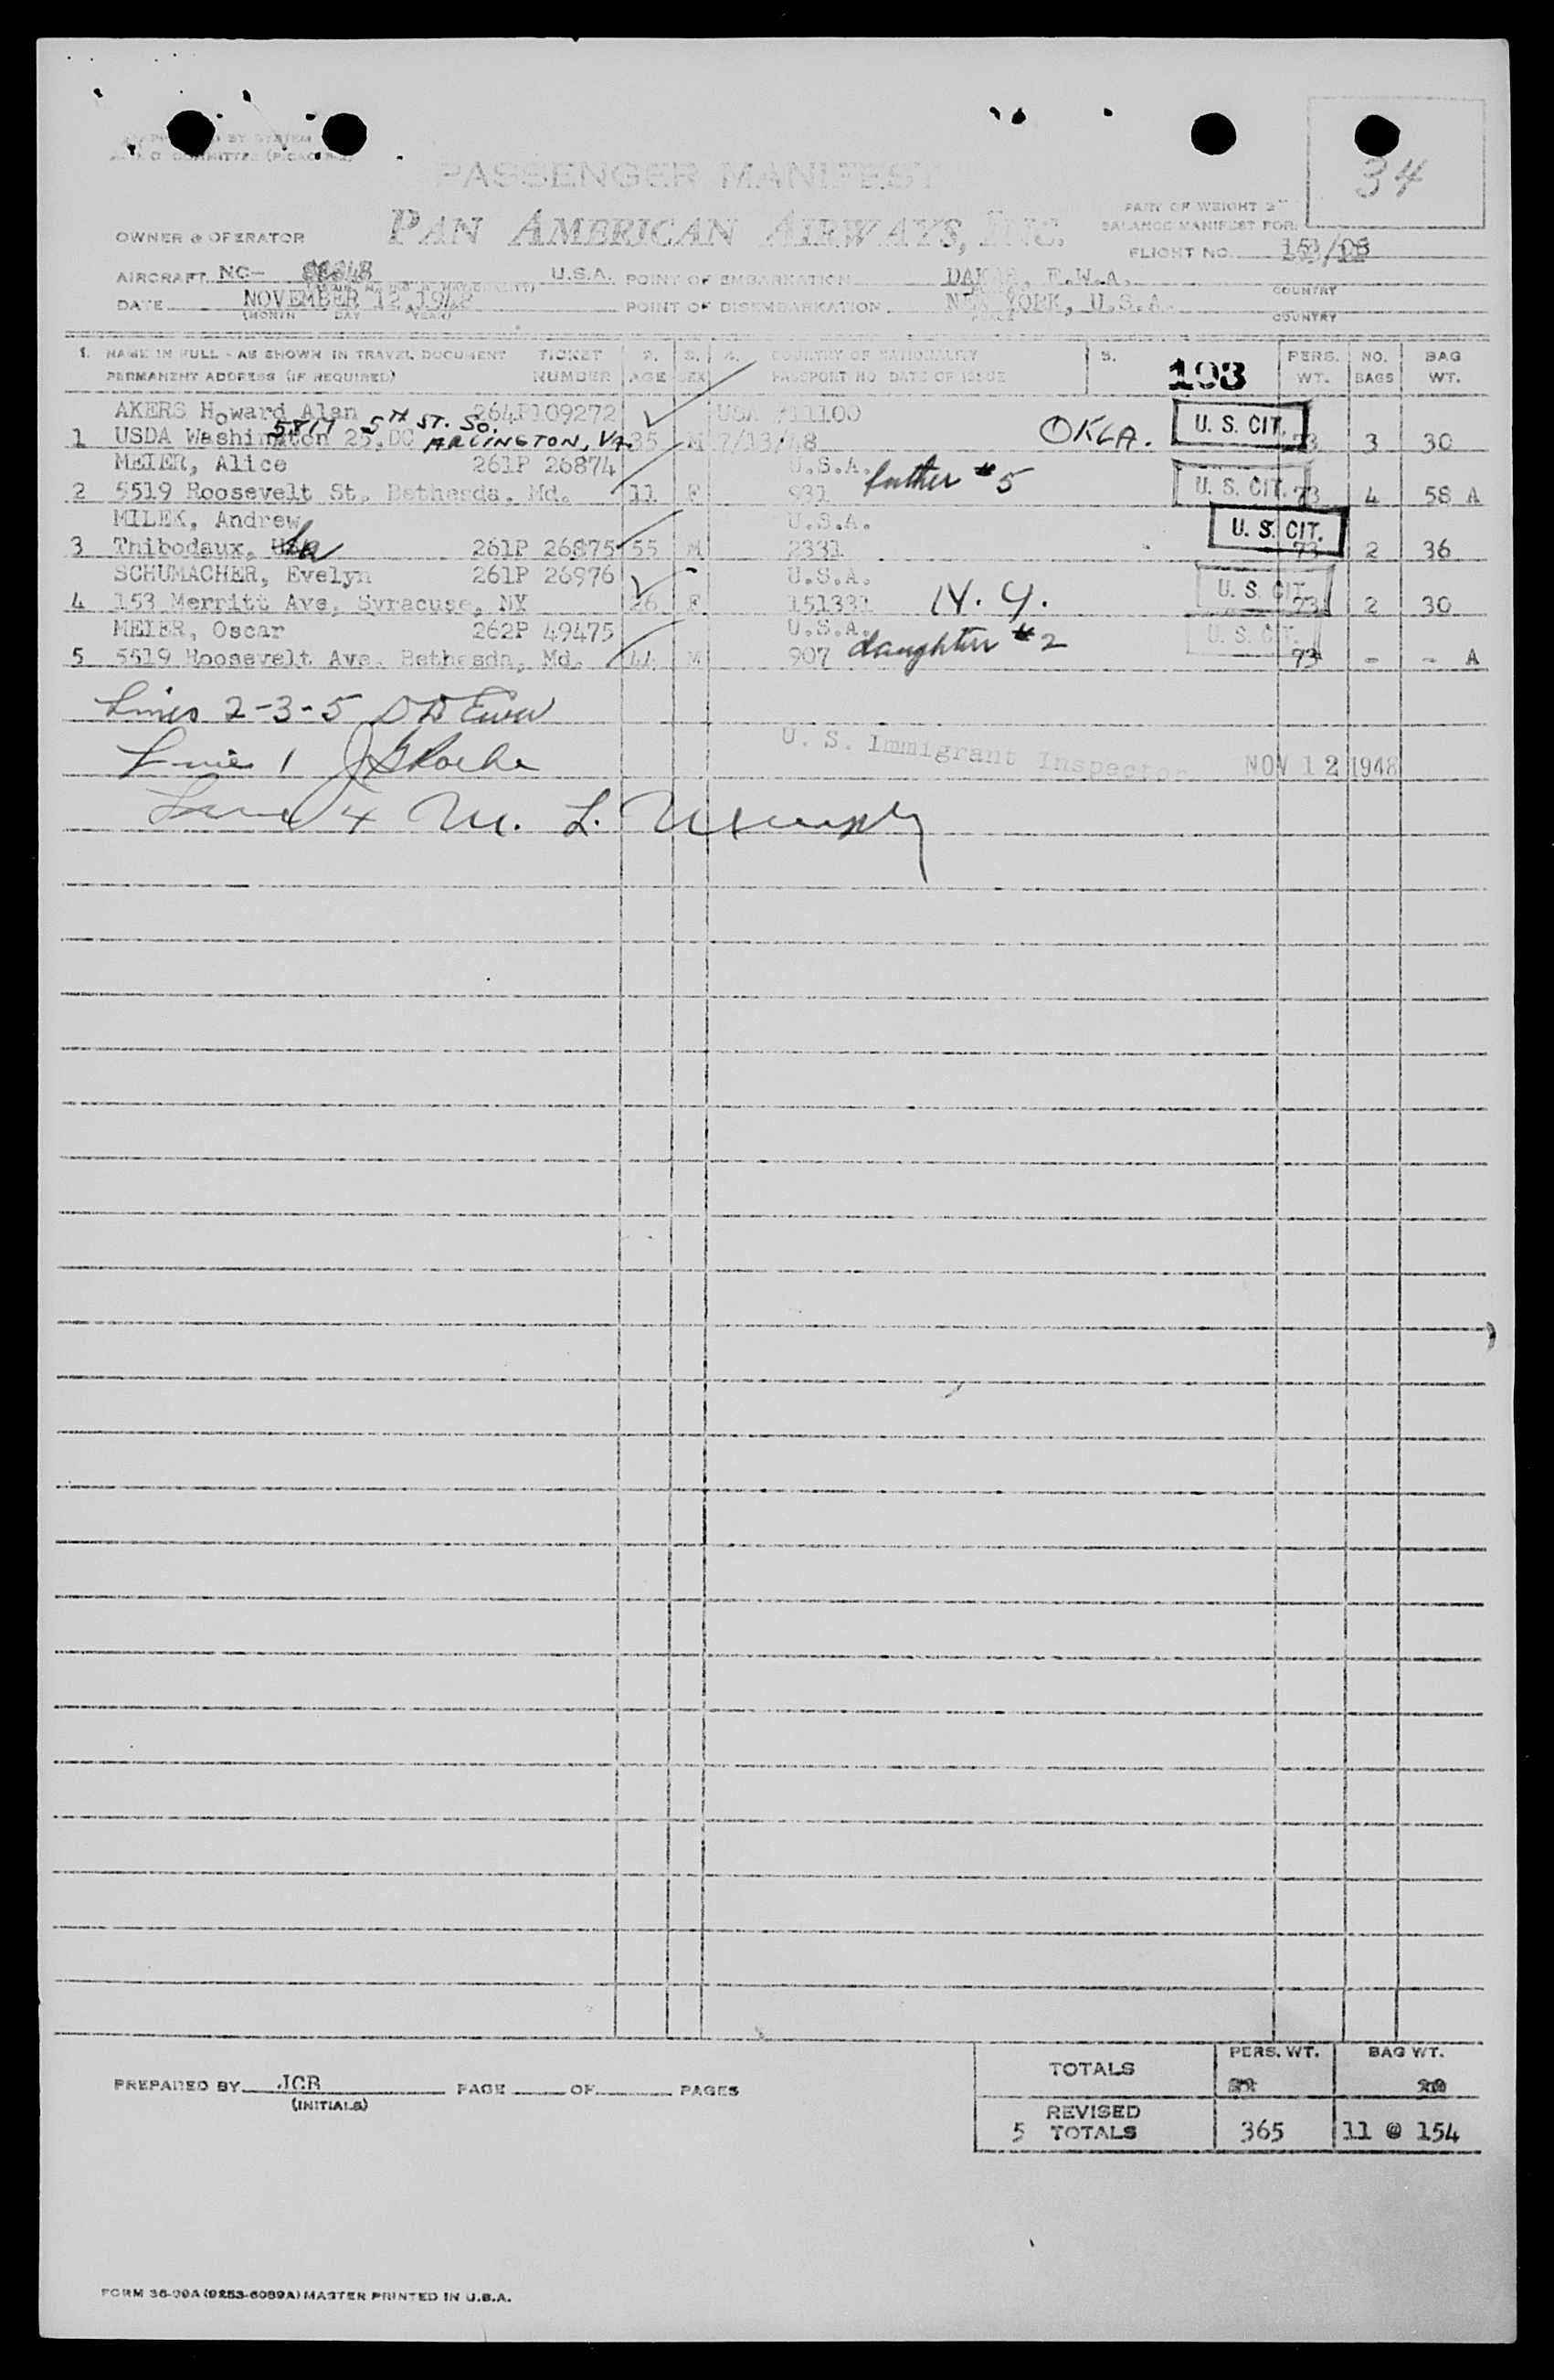 34
PASSENGER MANIFEST
PAN AMERICAN AIRWAYS, INC.
PART OF WEIGHT &
BALANCE MANIFEST FOR:
OWNER & OPERATOR
FLIGHT NO. 151/08
AIRCRAFT NC- U.S.A. POINT OF EMBARKATION DAKAR, F.W.A.
COUNTRY
DATE NOVEMBER 12,1948 POINT OF DISEMBARKATION NEW YORK, U.S.A.
(MONTH DAY YEAR) COUNTRY
1. NAME IN FULL - AS SHOWN IN TRAVEL DOCUMENT TICKET 2. 3. 4. COUNTRY OF NATIONALITY 5. PERS. NO. BAG
PERMANENT ADDRESS (IF REQUIRED) NUMBER AGE SEX PASSPORT NO DATE OF ISSUE 193 WT. BAGS WT.
AKERS Howard Alan 264P109272 USA 111100
5817 5TH ST. SO.
1 USDA Washington 25,DC ARLINGTON, VA. 35 M 7/13/48 OKLA. U. S. CIT. 73 3 30
MEIER, Alice 261P 26874 U.S.A. father #5
2 5519 Roosevelt St, Bethesda, Md. 11 F 931 U. S. CIT. 73 4 58 A
MILEK, Andrew U.S.A.
3 Thibodaux, La 261P 26875 55 M 2331 U. S. CIT. 73 2 36
SCHUMACHER, Evelyn 261P 26976 U.S.A.
4 153 Merritt Ave, Syracuse, NY 26 F 151331 N. Y. U. S. CIT. 73 2 30
MEIER, Oscar 262P 49475 U.S.A. daughter #2
5 5519 Roosevelt Ave. Bethesda, Md. 44 M 907 U. S. CIT. 73 - - A
Lines 2-3-5
Line 1 J G Roche
U. S. Immigrant Inspector NOV 12 1948
Line 4 M. L.
TOTALS PERS. WT. BAG WT.
PREPARED BY JCB PAGE OF PAGES
(INITIALS)
5 REVISED TOTALS 365 11 @ 154
FORM 36-09A (9253-6089A) MASTER PRINTED IN U.S.A.